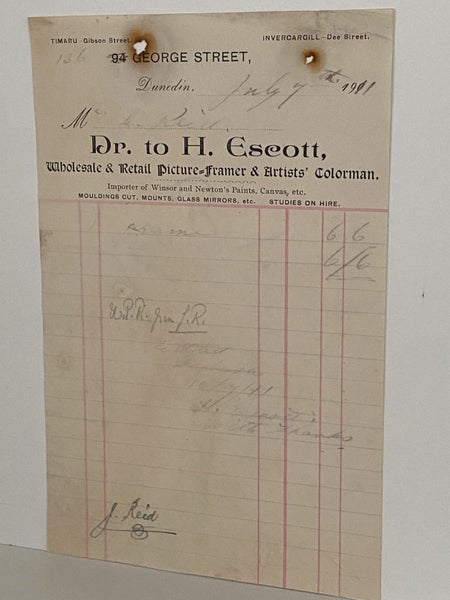 TIMARU-Gibson Street. INVERCARGILL-Dee Street.
136 94 GEORGE STREET,
Dunedin, July 7th 1911
Mr Reid
Dr. to H. Escott,
Wholesale & Retail Picture=Framer & Artists' Colorman.
Importer of Winsor and Newton's Paints, Canvas, etc.
MOULDINGS CUT, MOUNTS, GLASS MIRRORS, etc. STUDIES ON HIRE.
6 6
6/6
from J.R.
H. Escott
With thanks
J. Reid